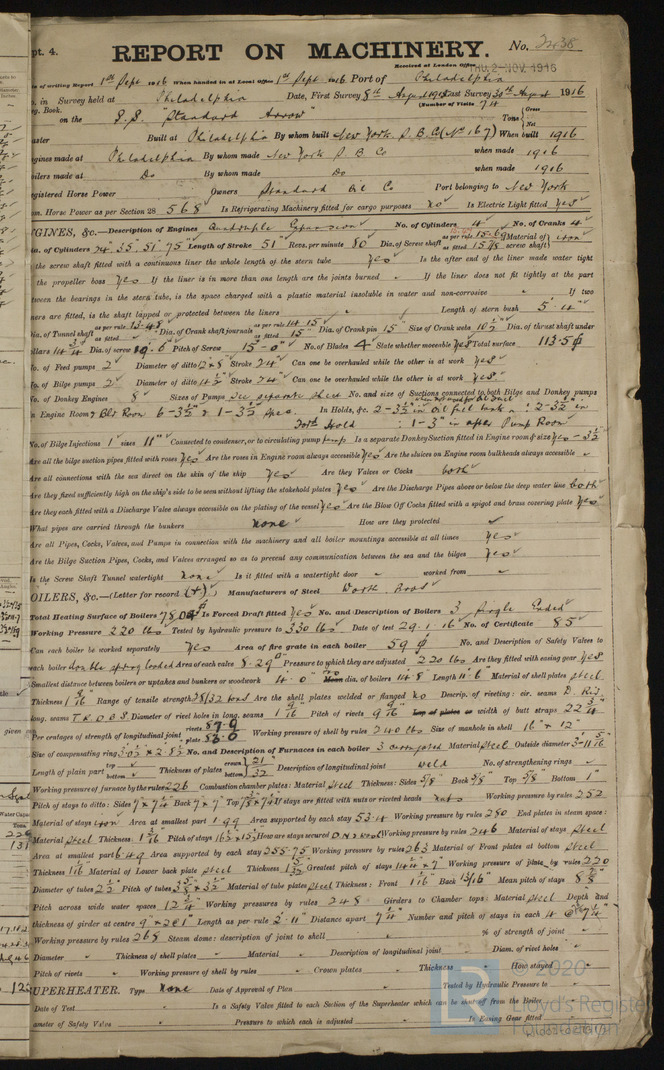 pt. 4.
REPORT ON MACHINERY. No. 2438
Received at London Office THU. 2-NOV. 1916
of writing Report 1st Sept 1916 When handed in at Local Office 1st Sept 1916 Port of Philadelphia
in Survey held at Philadelphia Date, First Survey 8th August 1915 Last Survey 30th August 1916
eg. Book. (Number of Visits 74
on the S.S. "Standard Arrow" Tons Gross Net
aster Built at Philadelphia By whom built New York S. B. Co (No 167) When built 1916
ngines made at Philadelphia By whom made New York S B Co when made 1916
oilers made at Do By whom made Do when made 1916
egistered Horse Power Owners Standard Oil Co Port belonging to New York
om. Horse Power as per Section 28 568 Is Refrigerating Machinery fitted for cargo purposes No Is Electric Light fitted Yes
NGINES, &c.—Description of Engines Quadruple Expansion No. of Cylinders 4 No. of Cranks 4
Dia. of Cylinders 24" 35" 51" 75" Length of Stroke 51" Revs. per minute 80 Dia. of Screw shaft as per rule as fitted Material of screw shaft iron
the screw shaft fitted with a continuous liner the whole length of the stern tube Yes Is the after end of the liner made water tight
the propeller boss Yes If the liner is in more than one length are the joints burned If the liner does not fit tightly at the part
tween the bearings in the stern tube, is the space charged with a plastic material insoluble in water and non-corrosive If two
ners are fitted, is the shaft lapped or protected between the liners Length of stern bush 5'-4"
Dia. of Tunnel shaft as per rule 13.48 as fitted Dia. of Crank shaft journals as per rule 14.15 as fitted 15" Dia. of Crank pin 15" Size of Crank webs 10½ Dia. of thrust shaft under
ollars 14¾ Dia. of screw 19.6 Pitch of Screw 15'-0" No. of Blades 4 State whether moveable Yes Total surface 113.5
No. of Feed pumps 2 Diameter of ditto 12 x 8 Stroke 24" Can one be overhauled while the other is at work Yes
No. of Bilge pumps 2 Diameter of ditto 4½ Stroke 24" Can one be overhauled while the other is at work Yes.
No. of Donkey Engines 8 Sizes of Pumps See separate sheet No. and size of Suctions connected to both Bilge and Donkey pumps
in Engine Room & Blr Room 6-3½ & 1-3½ In Holds, &c. 2-3½ in Oil fuel tank 2-3½ in
Forth Hold 1-3" in after Pump Room
No. of Bilge Injections 1 sizes 11" Connected to condenser, or to circulating pump pump Is a separate Donkey Suction fitted in Engine room & size Yes-3½
Are all the bilge suction pipes fitted with roses Yes Are the roses in Engine room always accessible Yes Are the sluices on Engine room bulkheads always accessible
Are all connections with the sea direct on the skin of the ship Yes Are they Valves or Cocks both
Are they fixed sufficiently high on the ship's side to be seen without lifting the stokehold plates Yes Are the Discharge Pipes above or below the deep water line both
Are they each fitted with a Discharge Valve always accessible on the plating of the vessel Yes Are the Blow Off Cocks fitted with a spigot and brass covering plate Yes
What pipes are carried through the bunkers None How are they protected
Are all Pipes, Cocks, Valves, and Pumps in connection with the machinery and all boiler mountings accessible at all times Yes
Are the Bilge Suction Pipes, Cocks, and Valves arranged so as to prevent any communication between the sea and the bilges Yes
Is the Screw Shaft Tunnel watertight None Is it fitted with a watertight door worked from
OILERS, &c.—(Letter for record (+)) Manufacturers of Steel Worth Bros
Total Heating Surface of Boilers 7800 Is Forced Draft fitted Yes No. and Description of Boilers 3 Single Ended
Working Pressure 220 lbs Tested by hydraulic pressure to 330 lbs Date of test 29.1.16 No. of Certificate 85
Can each boiler be worked separately Yes Area of fire grate in each boiler 59 No. and Description of Safety Valves to
each boiler double spring loaded Area of each valve 8.29 Pressure to which they are adjusted 220 lbs Are they fitted with easing gear Yes
Smallest distance between boilers or uptakes and bunkers or woodwork 4.0" Mean dia. of boilers 14.8 Length 11.6 Material of shell plates Steel
Thickness Range of tensile strength 28/32 tons Are the shell plates welded or flanged No Descrip. of riveting: cir. seams D. Riv
long. seams T.R.D.B.S. Diameter of rivet holes in long. seams Pitch of rivets Lap of plates or width of butt straps 22¾
Per centages of strength of longitudinal joint rivets 87.9 plate 83.0 Working pressure of shell by rules 240 lbs Size of manhole in shell 16" x 12"
Size of compensating ring No. and Description of Furnaces in each boiler 3 corrugated Material Steel Outside diameter
Length of plain part top bottom Thickness of plates crown bottom 21/32 Description of longitudinal joint weld No. of strengthening rings
Working pressure of furnace by the rules 226 Combustion chamber plates: Material Steel Thickness: Sides 5/8" Back 5/8" Top 5/8" Bottom 1"
Pitch of stays to ditto: Sides 7 x 7¼ Back 7" x 7" Top If stays are fitted with nuts or riveted heads nuts Working pressure by rules 252
Material of stays iron Area at smallest part 1.99 Area supported by each stay 53.4 Working pressure by rules 280 End plates in steam space:
Material Steel Thickness Pitch of stays How are stays secured Working pressure by rules 246 Material of stays Steel
Area at smallest part 6.49 Area supported by each stay 255.75 Working pressure by rules 263 Material of Front plates at bottom Steel
Thickness Material of Lower back plate Steel Thickness Greatest pitch of stays 14¾ x 7" Working pressure of plate by rules 220
Diameter of tubes 2½ Pitch of tubes Material of tube plates Steel Thickness: Front Back 13/16" Mean pitch of stays
Pitch across wide water spaces Working pressures by rules 248 Girders to Chamber tops: Material Steel Depth and
thickness of girder at centre Length as per rule 2'.11" Distance apart 7¼" Number and pitch of stays in each
Working pressure by rules 268 Steam dome: description of joint to shell % of strength of joint
Diameter Thickness of shell plates Material Description of longitudinal joint Diam. of rivet holes
Pitch of rivets Working pressure of shell by rules Crown plates Thickness How stayed
UPERHEATER. Type None Date of Approval of Plan Tested by Hydraulic Pressure to
Date of Test Is a Safety Valve fitted to each Section of the Superheater which can be shut off from the Boiler
ameter of Safety Valve Pressure to which each is adjusted Is Easing Gear fitted
© 2020
Lloyd's Register
Foundation